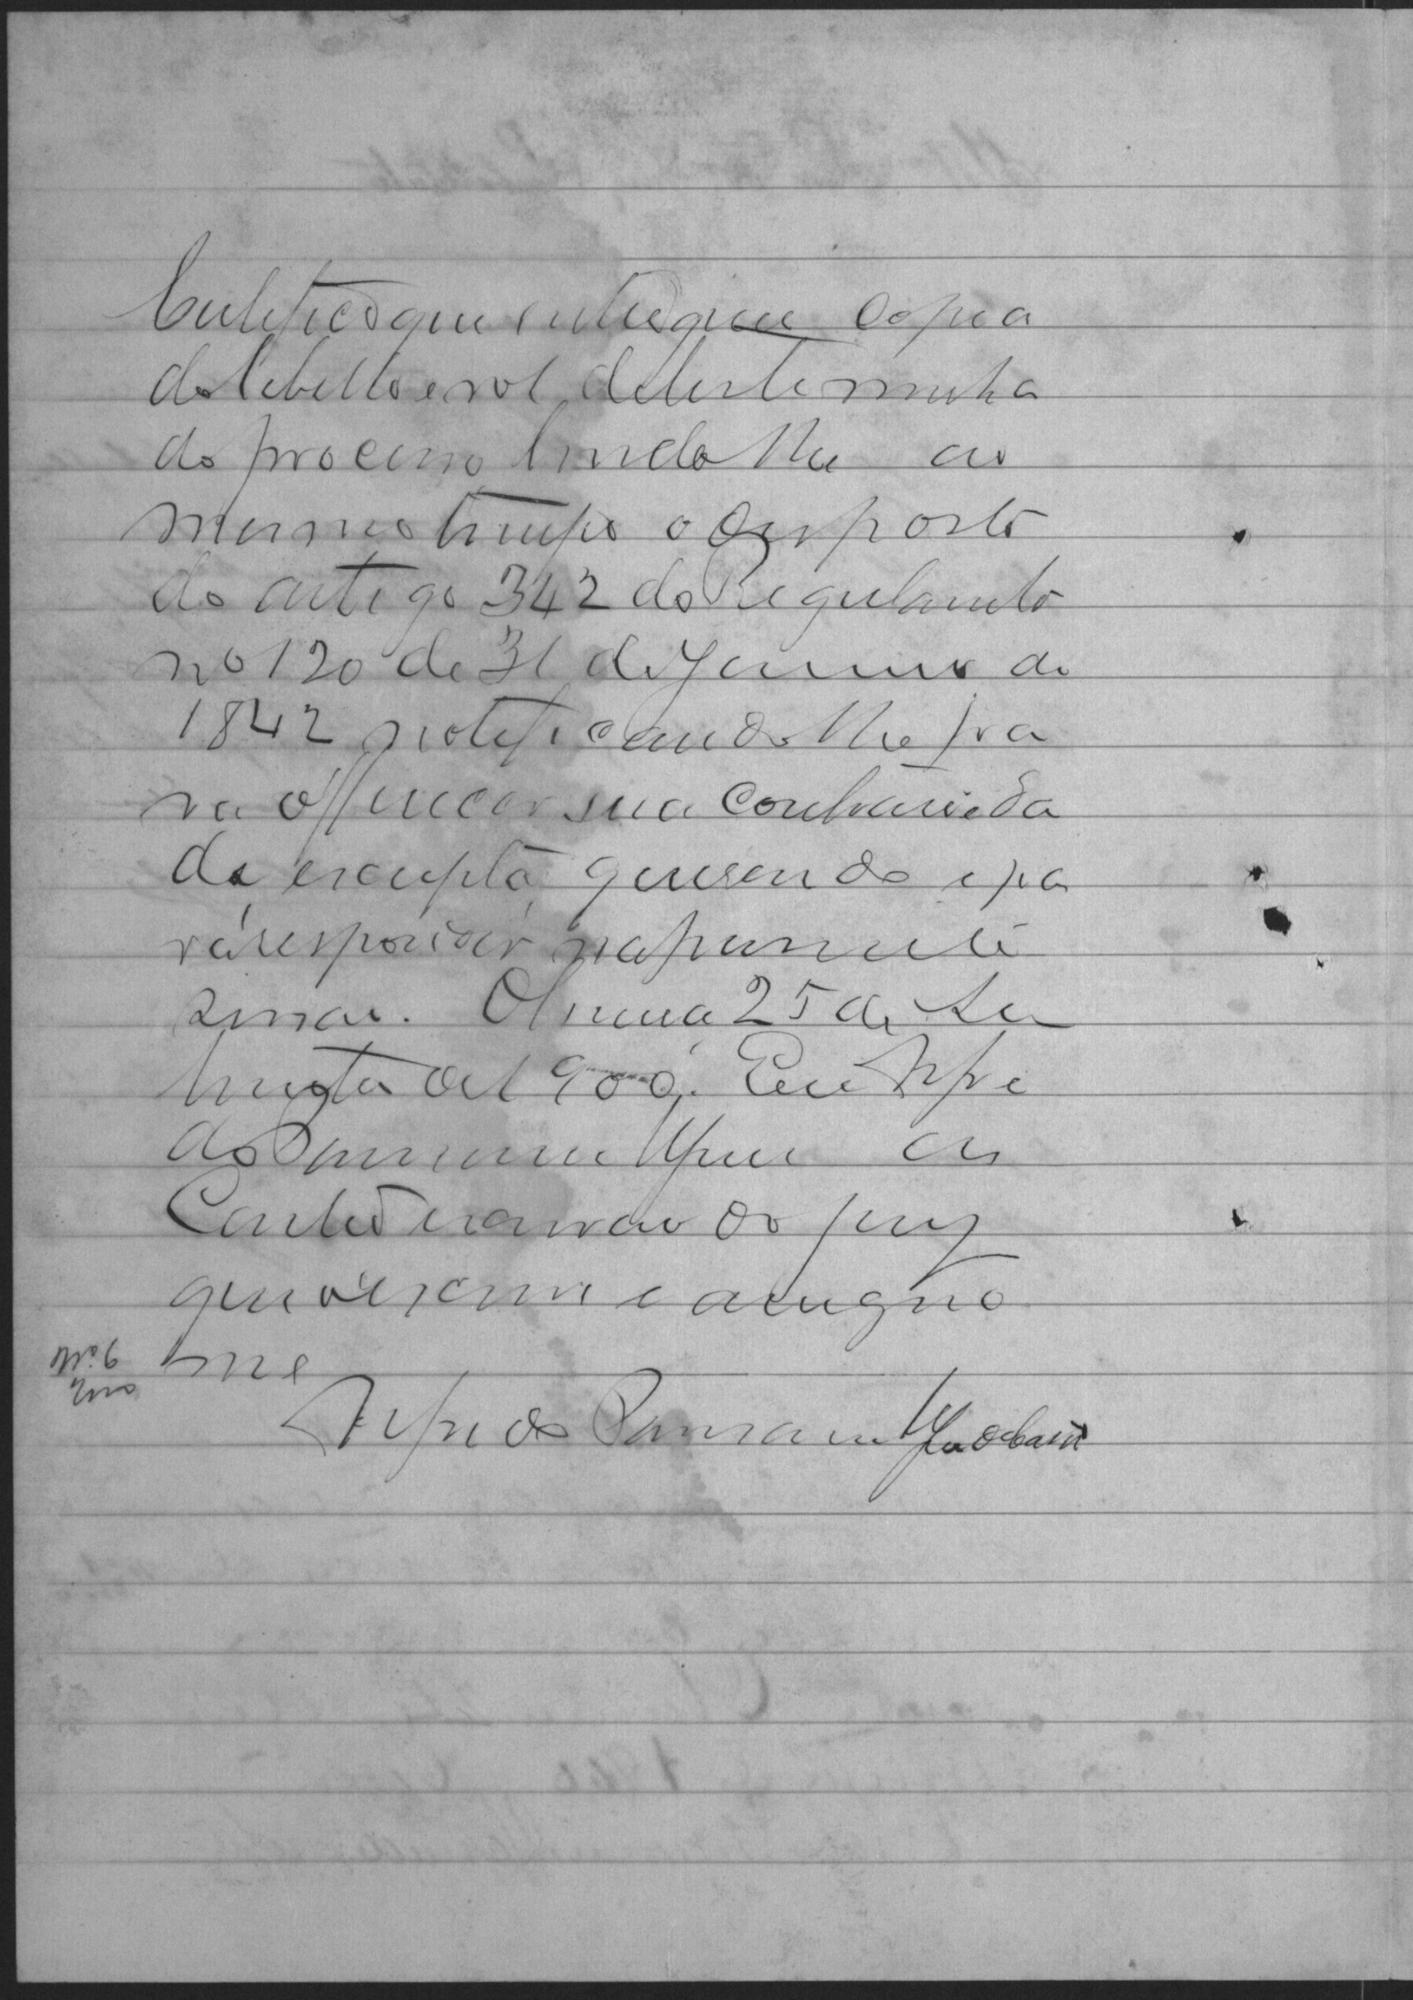 Certifico que entreguei copia
do libello e rol de testemunha
do processo lendo lhe ao
mesmo tempo o disposto
do artigo 342 do Regulamento
nº 120 de 31 de Janeiro de
1842 notificando lhe pa
ra offerecer sua contrarieda
de escripta querendo e pa
ra responder na prim
25 de Se
tembro de 1900. Eu Alfre
do
escrivão do jury
que o escrevi e assigno
me
Nº 6
Alfredo